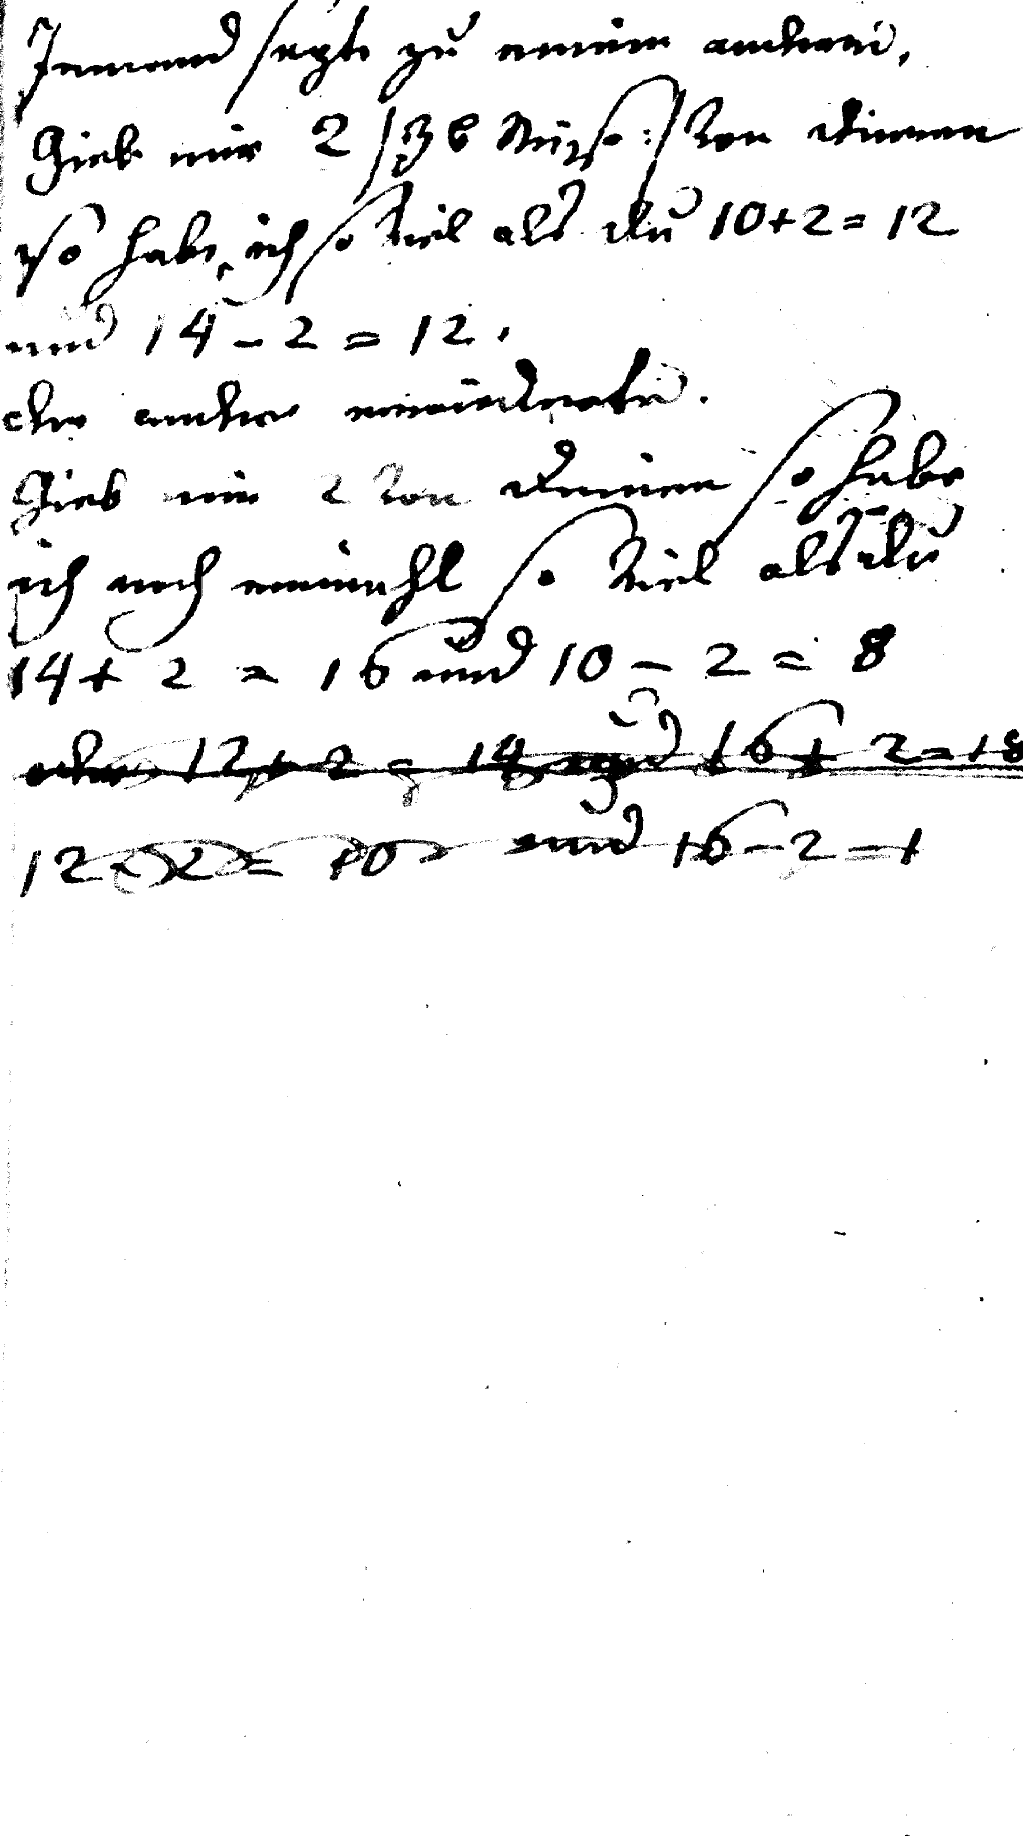 Jemand sagte zu einem andern,
Gieb mir 2 /: z B Nüsse :/ von deinen
so habe ich so viel als du 10+2=12
und 14-2=12.
der andre erwiederte.
Gieb mir 2 von deinen so habe
ich noch einmahl so viel als du
14+2=16 und 10-2=8
oder 12+2=14 und 16+2=18
12-2=10 und 16-2=1